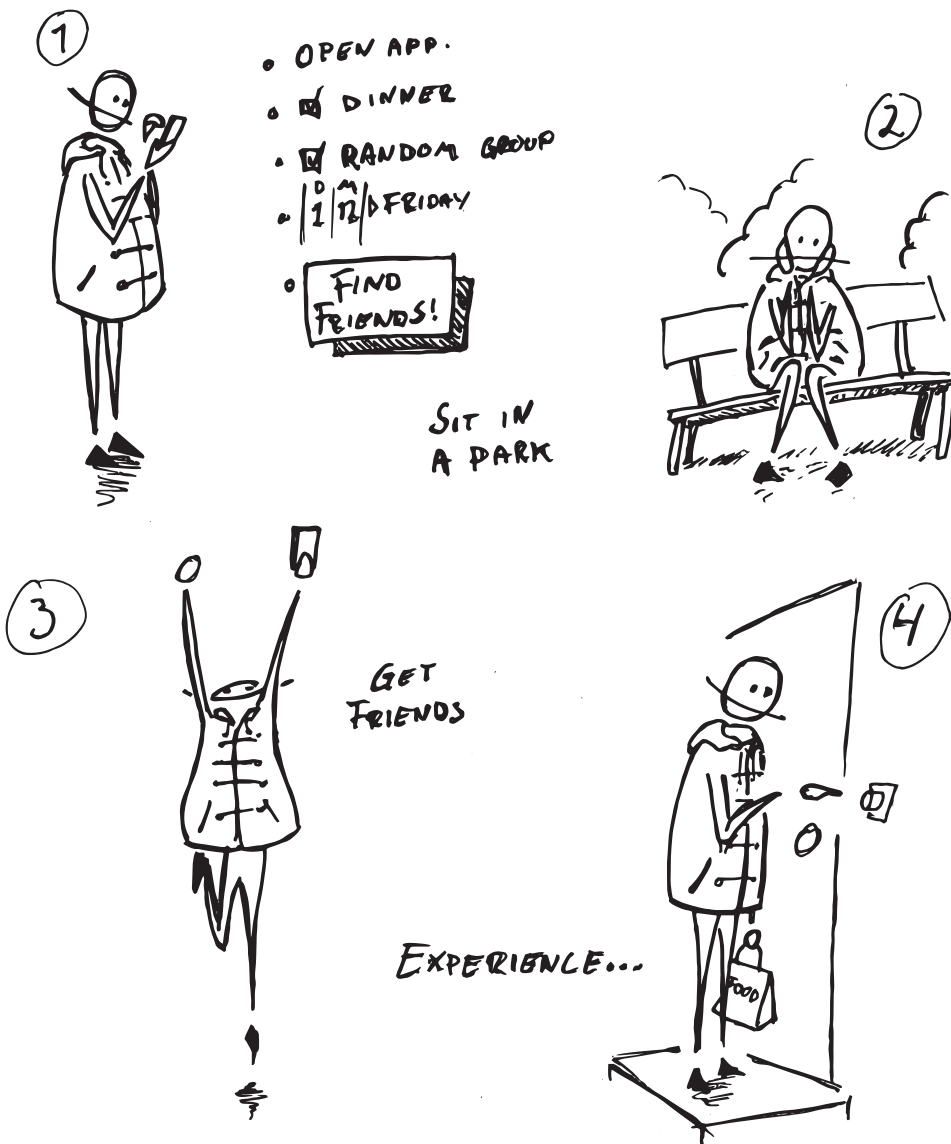 1
OPEN APP.
DINNER
RANDOM GROUP
D M
1 12 FRIDAY
FIND
FRIENDS!
2
SIT IN
A PARK
3
GET
FRIENDS
4
EXPERIENCE...
FOOD